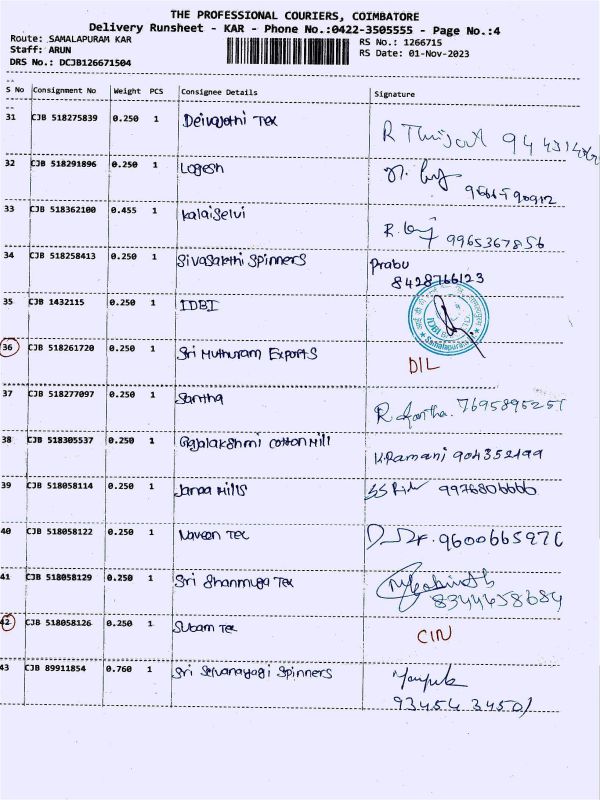 THE PROFESSIONAL COURIERS, COIMBATORE
Delivery Runsheet - KAR - Phone No.:0422-3505555 - Page No.:4
Route: SAMALAPURAM KAR RS No.: 1266715
Staff: ARUN RS Date: 01-Nov-2023
DRS No.: DCJB126671504
S No Consignment No Weight PCS Consignee Details Signature
31 CJB 518275839 0.250 1 Deivajothi Tex
32 CJB 518291896 0.250 1 Logesh
33 CJB 518362100 0.455 1 Kalaiselvi
9965367856
34 CJB 518258413 0.250 1 Sivasakthi Spinners Prabu
8428766123
35 CJB 1432115 0.250 1 IDBI
36 CJB 518261720 0.250 1 Sri Muthuram Exports
DIL
37 CJB 518277097 0.250 1 Santha
38 CJB 518305537 0.250 1 Gajalakshmi Cotton Mill
K.Ramani 904352499
39 CJB 518058114 0.250 1 Janaa Mills 9976806666
40 CJB 518058122 0.250 1 Naveen Tex
41 CJB 518058129 0.250 1 Sri Shanmuga Tex
8344458684
42 CJB 518058126 0.250 1 Subam Tex CIN
43 CJB 89911854 0.760 1 Sri Selvanayagi Spinners